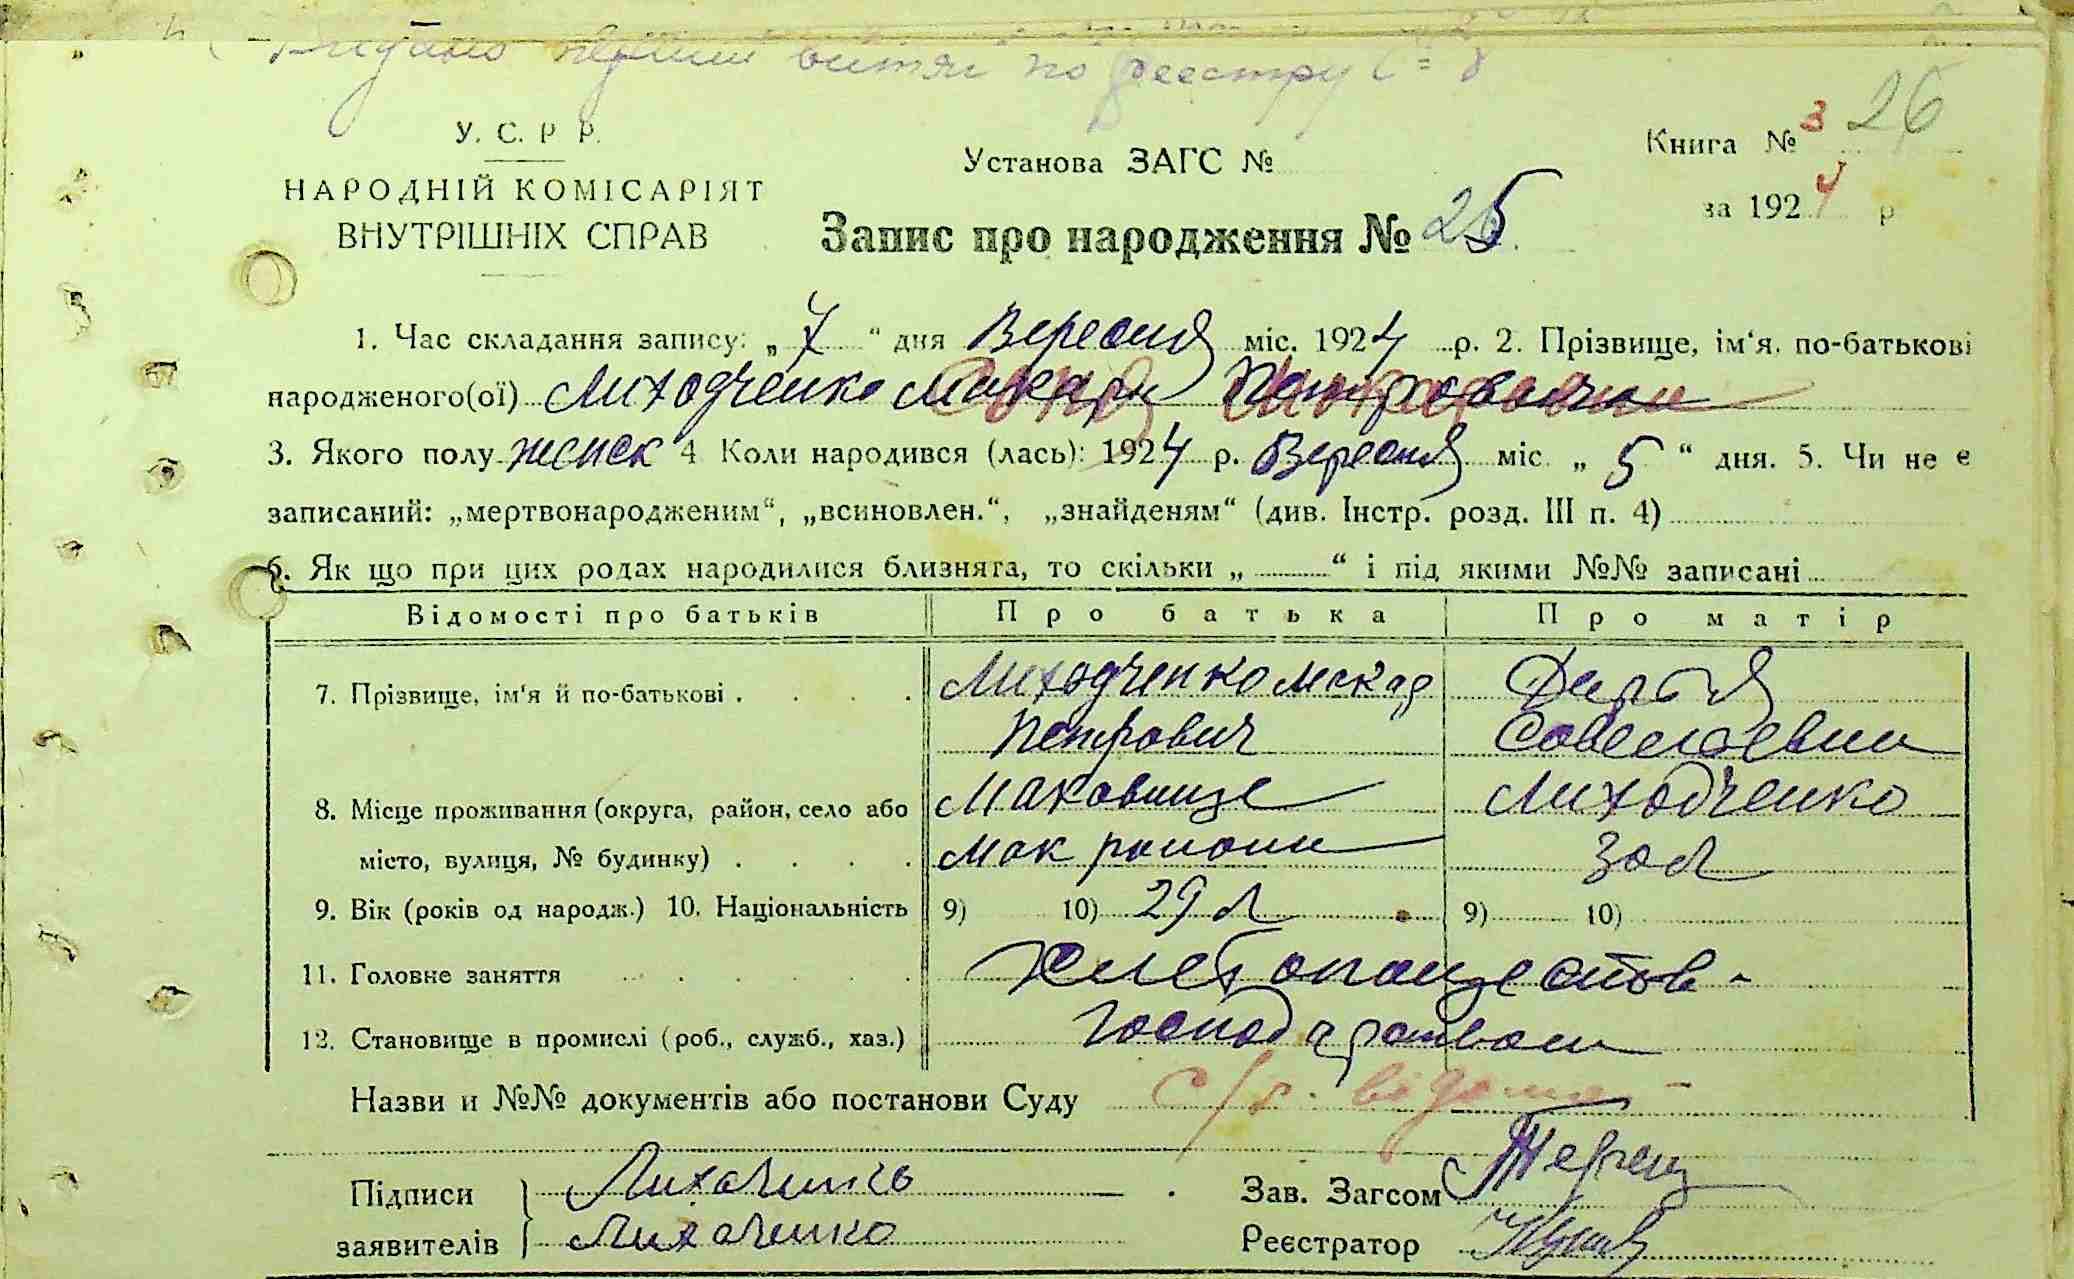 Видано витяг по реестру
У. С. Р. Р.
НАРОДНІЙ КОМІСАРІЯТ
ВНУТРІШНІХ СПРАВ
Установа ЗАГС №
Книга № 3 26
за 1924 р
Запис про народження № 25
1. Час складання запису: „ 7 “ дня Вересня міс. 1924 р. 2. Прізвище, ім'я, по-батькові
народженого(ої) Лиходченко Макар Петрович
3. Якого полу женск 4 Коли народився (лась): 1924 р. Вересня міс. „ 5 “ дня. 5. Чи не є
записаний: „мертвонародженим“, „всиновлен.“, „знайденям“ (див. Інстр. розд. III п. 4)
6. Як що при цих родах народилися близнята, то скільки „ “ і під якими №№ записані
Відомості про батьків Про батька Про матір
7. Прізвище, ім'я й по-батькові . . . . Лиходченко Макар Дарья
Петрович Савелевна
8. Місце проживання (округа, район, село або Маковище Лиходченко
місто, вулиця, № будинку) . . . . Мак района
9. Вік (років од народж.) 10. Національність 9) 10) 29 л 9) 10)
11. Головне заняття Хлебопашеством
12. Становище в промислі (роб., служб., хаз.)
Назви и №№ документів або постанови Суду
Підписи Лиходченко Зав. Загсом
заявителів Лиходченко Реєстратор